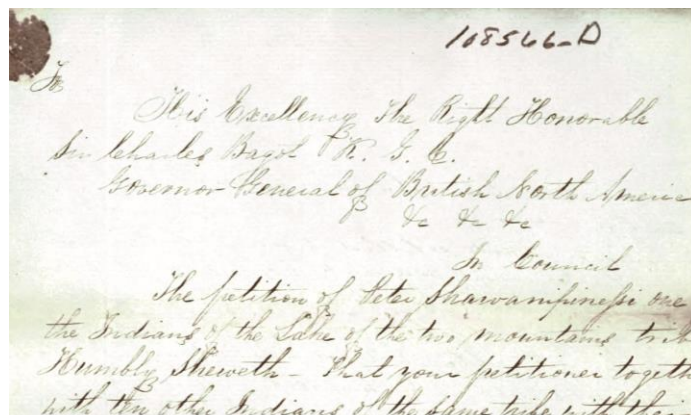 108566-D
To
His Excellency The Right Honorable
Sir Charles Bagot K. G. C.
Governor General of British North Americ
&c &c &c
In Council
The petition of Peter Shawanipinessi one
the Indians of the Lake of the two mountains trib
Humbly Sheweth - That your petitioner togeth
with ten other Indians of the same tribe with thei